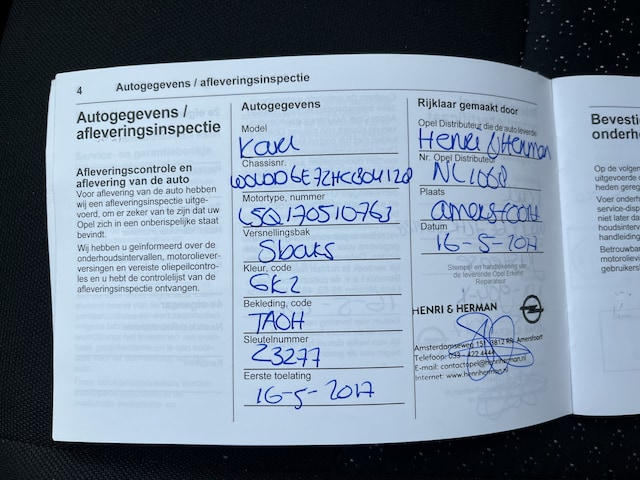 4 Autogegevens / afleveringsinspectie
Autogegevens /
afleveringsinspectie
Afleveringscontrole en
aflevering van de auto
Voor aflevering van de auto hebben
wij een afleveringsinspectie uitge-
voerd, om er zeker van te zijn dat uw
Opel zich in een onberispelijke staat
bevindt.
Wij hebben u geïnformeerd over de
onderhoudsintervallen, motoroliever-
versingen en vereiste oliepeilcontro-
les en u hebt de controlelijst van de
afleveringsinspectie ontvangen.
Autogegevens
Model
Karl
Chassisnr.
Motortype, nummer
Versnellingsbak
5bak
Kleur, code
GK2
Bekleding, code
TAOH
Sleutelnummer
23277
Eerste toelating
16-5-2017
Rijklaar gemaakt door
Opel Distributeur die de auto leverde
Henri & Herman
Nr. Opel Distributeur
NL1068
Plaats
amersfoort
Datum
16-5-2017
Stempel en handtekening van
de leverende Opel Erkend
Reparateur
HENRI & HERMAN
Amsterdamseweg 151 3812 RR Amersfoort
Telefoon: 033 - 422 4444
E-mail: contactopel@henriherman.nl
Internet: www.henriherman.nl
Bevesti
onderh
Op de volgen
uitgevoerde o
heden gereg
Voer onderh
service-disp
niet later da
houdsinterv
handleiding
Betrouwbar
motorolievi
gebruiken